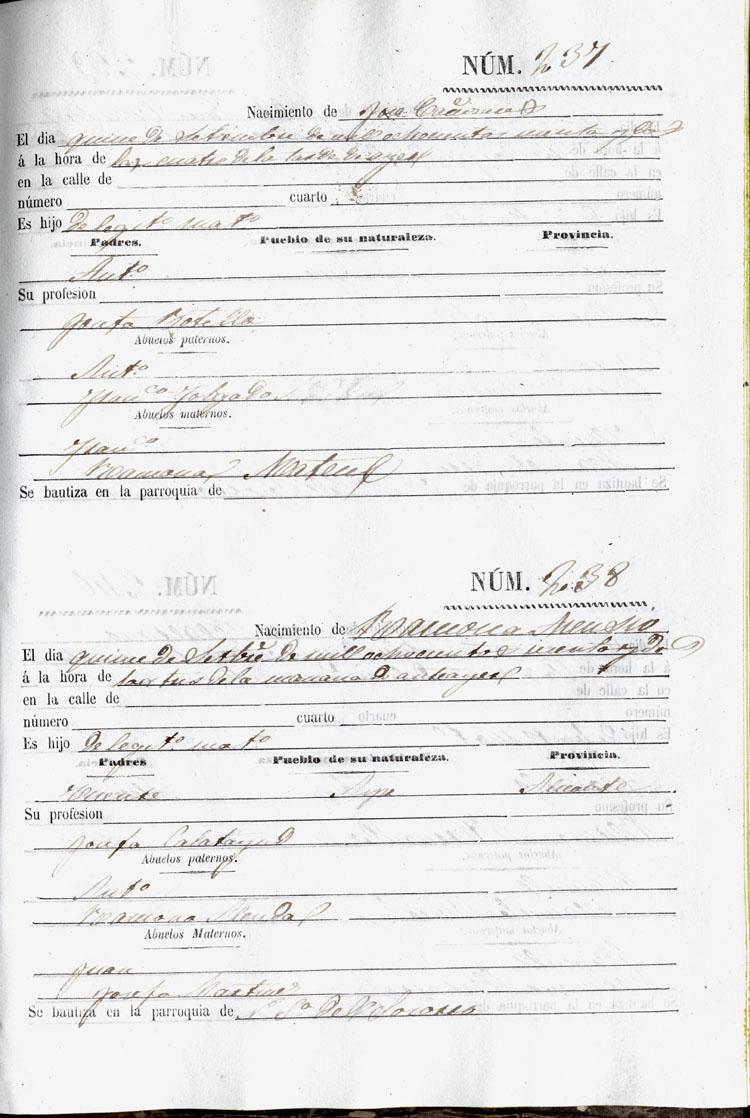 NÚM. 237
Nacimiento de José
El dia quince de Setiembre de mil ochocientos
á la hora de las cuatro de la tarde de ayer
en la calle de
número cuarto
Es hijo de legitº matº
Padres. Pueblo de su naturaleza. Provincia.
Antº
Su profesion
Josefa Botella
Abuelos paternos.
Antº
Francª
Abuelos maternos.
Francº
Ramona
Se bautiza en la parroquia de
NÚM. 238
Nacimiento de Ramona Asensio
El dia quince de Setbre de mil ochocientos
á la hora de las tres de la mañana de anteayer
en la calle de
número cuarto
Es hijo de legitº matº
Padres Pueblo de su naturaleza. Provincia.
Vicente Aspe Alicante
Su profesion
Josefa Calatayud
Abuelos paternos.
Antº
Ramona
Abuelos Maternos.
Juan
Josefa Martinez
Se bautiza en la parroquia de Nª Sª del Socorro